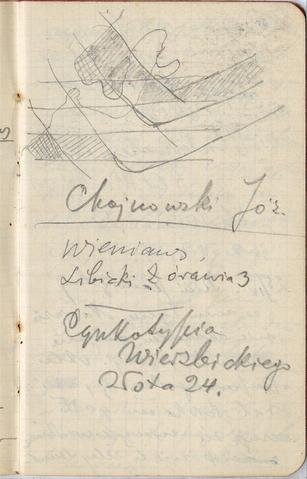 Chojnowski Józ.
Wieniaws.
Libicki Żórawia 3
Cynkotypia
Wierzbickiego
Wspta 24.